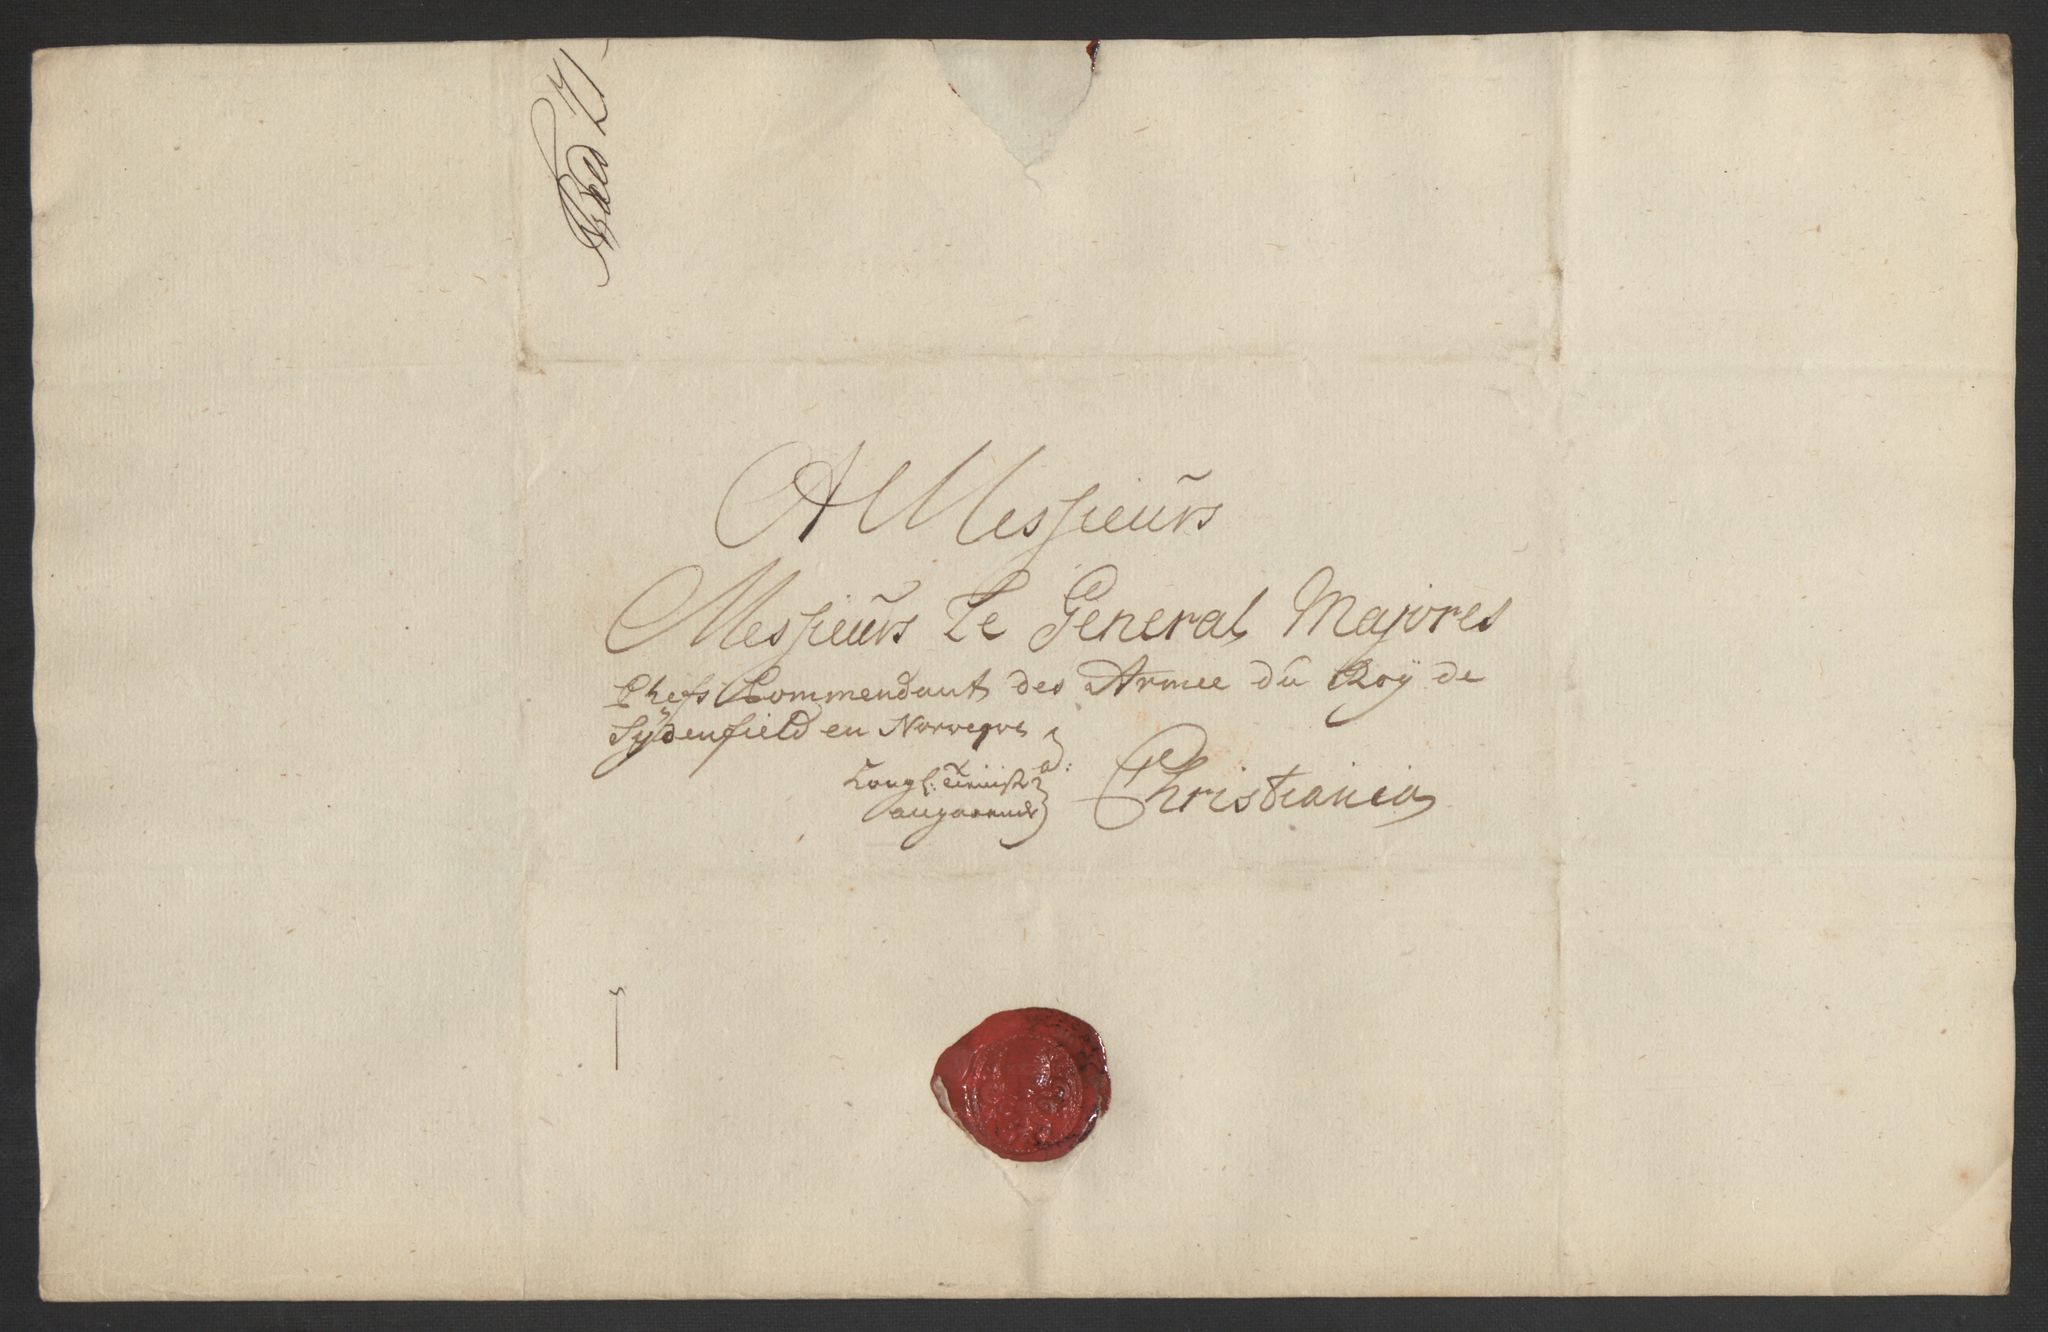 A Messieurs
Messieurs Le General Majores
Chefs Commendant des Armee du Roÿ de
Sÿdenfield en Norvegve
a:
Kongl: Tienist
angaaende
Christiania